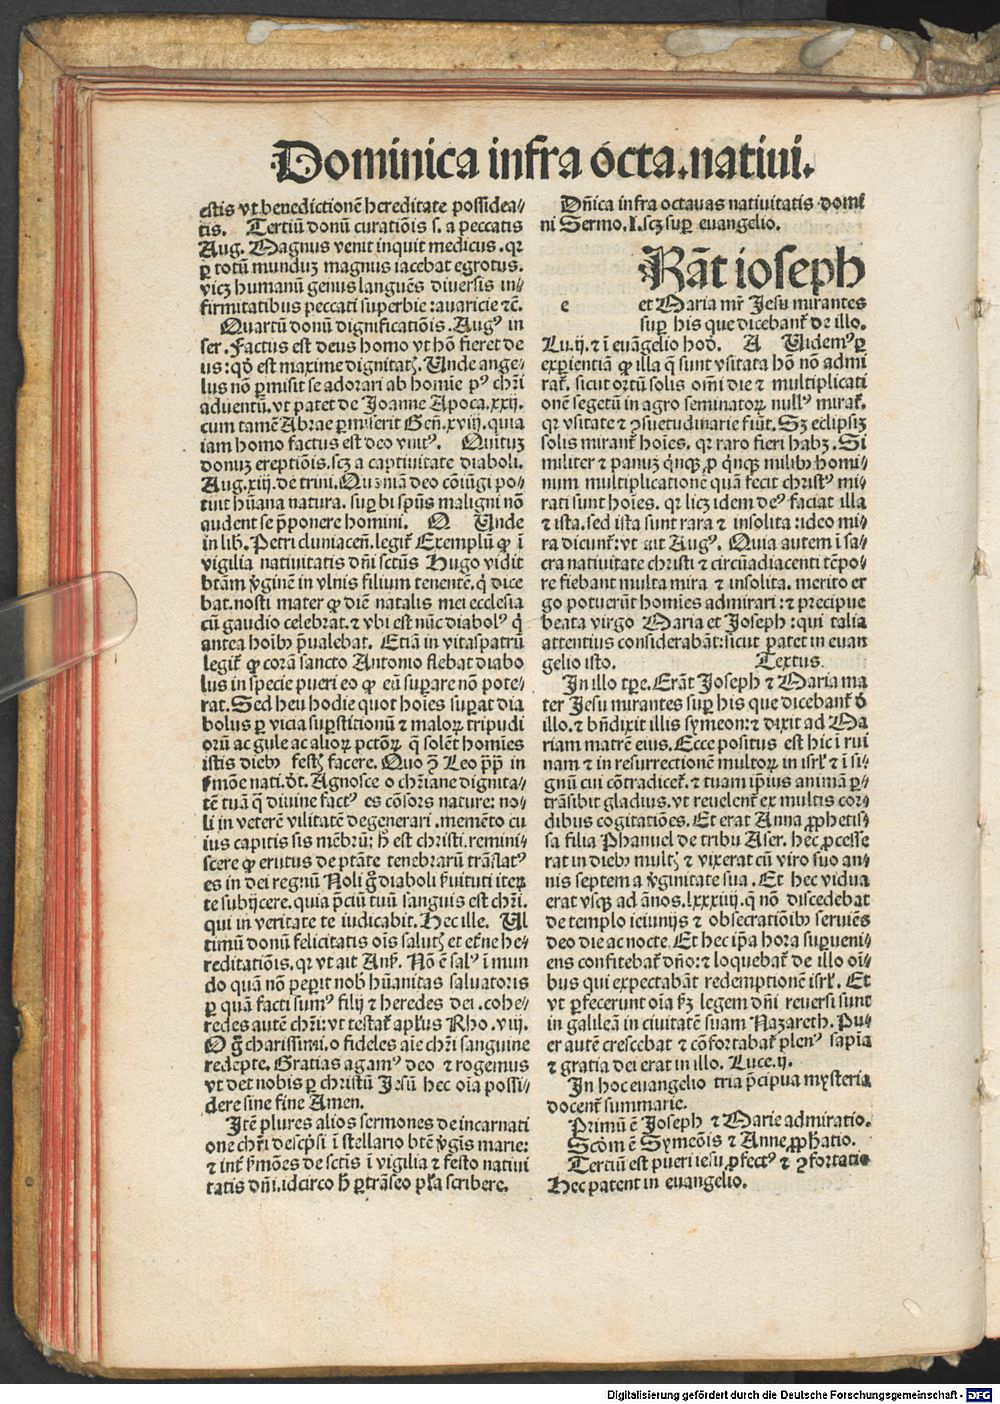 Dominica infra octa.natiui.
estis vt benedictionē hereditate possidea⸗
tis. Tertiū donū curatiōis s. a peccatis
Aug. Magnus venit inquit medicus. qꝛ
ꝑ totū munduꝫ magnus iacebat egrotus.
viꝫ humanū genus languēs diuersis in⸗
firmitatibus peccati superbie : auaricie ⁊c̄.
Quartū donū dignificatiōis. Augꝰ in
ser. Factus est deus homo vt hō fieret de
us : qd̄ est maxime dignitatꝭ. Unde ange⸗
lus nō ꝑmisit se adorari ab homīe pꝰ chr̄i
aduentū. vt patet de Joanne Apoca. xxij.
cum tamē Abrae ꝑmiserit Gen̄. xviij. quia
iam homo factus est deo vnitꝰ. Quituꝫ
donuꝫ ereptiōis. scꝫ a captiuitate diaboli.
Aug. xiij. de trini. Quoniā deo cōiūgi po⸗
tuit hūana natura. suꝑbi spūs maligni nō
audent se p̄ponere homini. O Unde
in lib. Petri cluniaceñ. legit᷑ Exemplū ꝙ ī
vigilia natiuitatis dn̄i sctūs Hugo vidit
btām v̄ginē in vlnis filium tenentē. q̇ dice
bat. nosti mater ꝙ diē natalis mei ecclesia
cū gaudio celebrat. ⁊ vbi est nūc diabolꝰ q̇
antea hoībꝫ p̄ualebat. Etiā in vitaspatrū
legit᷑ ꝙ corā sancto Antonio flebat diabo
lus in specie pueri eo ꝙ eū suꝑare nō pote⸗
rat. Sed heu hodie quot hoīes suꝑat dia
bolus ꝑ vicia suꝑstitionū ⁊ maloꝝ tripudi
orū ac gule ac alioꝝ pctōꝝ q̄ solēt homīes
istis diebꝫ festꝭ facere. Quo ꝯ̄ Leo pp̄ in
ẜmōe nati. dt̄. Agnosce o chr̄iane dignita⸗
tē tuā q̄ diuine factꝰ es cōsors nature : no⸗
li in veterē vilitatē degenerari . memēto cu
ius capitis sis mēbrū : h̄ est christi. remini⸗
scere ꝙ erutus de ptāte tenebrarū trāslatꝰ
es in dei regnū Noli g̊ diaboli ẜuituti iteꝝ
te subijcere. quia p̄ciū tuū sanguis est chr̄i.
qui in veritate te iudicabit. Hec ille. Ul
timū donū felicitatis oīs salutꝭ et etn̄e he⸗
reditatiōis. qꝛ vt ait Anß. Nō ē salꝰ ī mun
do quā nō peꝑit nobꝭ hūanitas saluatoris
ꝑ quā facti sumꝰ filij ⁊ heredes dei . cohe⸗
redes autē chr̄i : vt testat᷑ apl̄us Rho. viij.
O g̊ charissimi. o fideles aīe chr̄i sanguine
redēpte. Gratias agamꝰ deo ⁊ rogemus
vt det nobis ꝑ christū Jesū hec oīa possi⸗
dere sine fine Amen.
Itē plures alios sermones de incarnati
one chr̄i descp̄si ī stellario btē v̄gīs marie :
⁊ int᷑ ẜmōes de sctis ī vigilia ⁊ festo natiui
tatis dn̄i. idcirco h̄ ꝑtrāseo pl̄a scribere.
Dn̄ica infra octauas natiuitatis domi
ni Sermo. I. scꝫ suꝑ euangelio.
Rāt ioseph
e
et Maria mr̄ Jesu mirantes
suꝑ his que dicebant᷑ de illo.
Lu. ij. ⁊ ī euāgelio hod̄. A Uidemꝰ ꝑ
exꝑientiā ꝙ illa q̄ sunt vsitata hō nō admi
rat᷑. sicut ortū solis om̄i die ⁊ multiplicati
onē segetū in agro seminatoꝝ nullꝰ mirat᷑.
qꝛ vsitate ⁊ ꝯsuetudinarie fiūt. Sꝫ eclipsiꝫ
solis mirant᷑ hoīes. qꝛ raro fieri habꝫ. Si
militer ⁊ panuꝫ q̇nqꝫ ꝓ q̇nqꝫ milibꝫ homi⸗
num multiplicationē quā fecit christꝰ mi⸗
rati sunt hoīes. qꝛ licꝫ idem deꝰ faciat illa
⁊ ista. sed ista sunt rara ⁊ insolita : ideo mi⸗
ra dicunt᷑ : vt ait Augꝰ. Quia autem ī sa⸗
cra natiuitate christi ⁊ circūadiacenti tēpo⸗
re fiebant multa mira ⁊ insolita. merito er
go potuerūt homīes admirari : ⁊ precipue
beata virgo Maria et Joseph : qui talia
attentius considerabāt : sicut patet in euan
gelio isto. Textus.
In illo tꝑe. Erāt Joseph ⁊ Maria ma
ter Jesu mirantes suꝑ his que dicebant᷑ d̄
illo. ⁊ bn̄dixit illis symeon : ⁊ dixit ad Ma
riam matrē eius. Ecce positus est hic ī rui
nam ⁊ in resurrectionē multoꝝ in isrl̄ ⁊ ī si⸗
gnū cui cōtradicet᷑. ⁊ tuam ip̄ius animā ꝑ⸗
trāsibit gladius. vt reuelent᷑ ex multis cor⸗
dibus cogitatiōes. Et erat Anna ꝓphetis⸗
sa filia Phanuel de tribu Aser. hec ꝓcesse
rat in diebꝫ multꝭ ⁊ vixerat cū viro suo an⸗
nis septem a v̄ginitate sua. Et hec vidua
erat vsqꝫ ad ānos. lxxxiiij. q̄ nō discedebat
de templo ieiunijs ⁊ obsecratiōibꝫ seruiēs
deo die ac nocte. Et hec ip̄a hora suꝑueni⸗
ens confitebat᷑ dn̄o : ⁊ loquebat᷑ de illo oī⸗
bus qui expectabāt redemptionē isrl̄. Et
vt ꝑfecerunt oīa ẜꝫ legem dn̄i reuersi sunt
in galileā in ciuitatē suam Nazareth. Pu⸗
er autē crescebat ⁊ cōfortabat᷑ plenꝰ sapīa
⁊ gratia dei erat in illo. Luce. ij.
In hoc euangelio tria p̄cipua mysteria
docent᷑ summarie.
Primū ē Joseph ⁊ Marie admiratio.
Scōm ē Symeōis ⁊ Anne ꝓphatio.
Tertiū est pueri iesu ꝓfectꝰ ⁊ ꝯfortatio
Hec patent in euangelio.
Digitalisierung gefördert durch die Deutsche Forschungsgemeinschaft - DFG